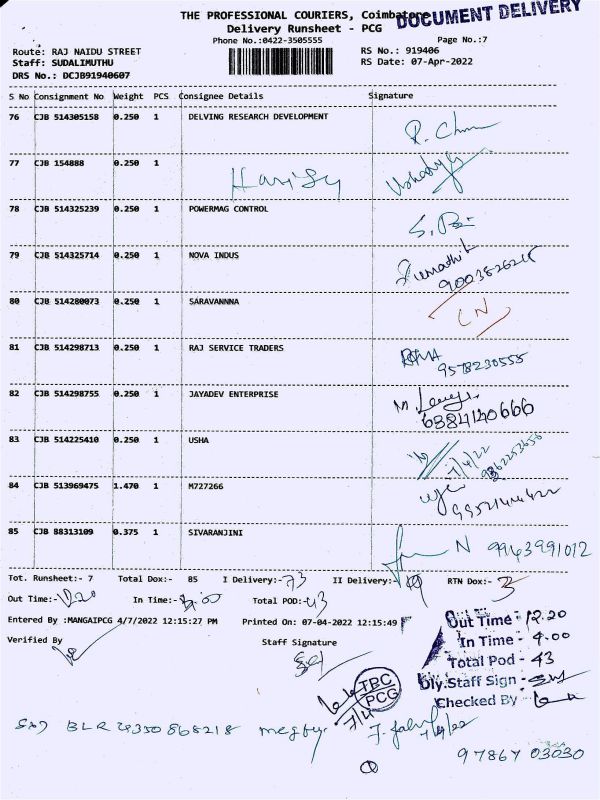 THE PROFESSIONAL COURIERS, Coimbatore
DOCUMENT DELIVERY
Delivery Runsheet - PCG
Phone No.:0422-3505555
Page No.:7
Route: RAJ NAIDU STREET
RS No.: 919406
Staff: SUDALIMUTHU
RS Date: 07-Apr-2022
DRS No.: DCJB91940607
S No Consignment No Weight PCS Consignee Details Signature
76 CJB 514305158 0.250 1 DELVING RESEARCH DEVELOPMENT
77 CJB 154888 0.250 1
78 CJB 514325239 0.250 1 POWERMAG CONTROL
79 CJB 514325714 0.250 1 NOVA INDUS
9003826215
80 CJB 514280073 0.250 1 SARAVANNNA
81 CJB 514298713 0.250 1 RAJ SERVICE TRADERS
9578230555
82 CJB 514298755 0.250 1 JAYADEV ENTERPRISE
6384140666
83 CJB 514225410 0.250 1 USHA
84 CJB 513969475 1.470 1 M727266
85 CJB 88313109 0.375 1 SIVARANJINI
N 9943991012
Tot. Runsheet:- 7 Total Dox:- 85 I Delivery:- 73 II Delivery:- RTN Dox:- 3
Out Time:- 12.20 In Time:- 4.00 Total POD:- 43
Entered By :MANGAIPCG 4/7/2022 12:15:27 PM Printed On: 07-04-2022 12:15:49
Verified By Staff Signature
Out Time - 12.20
In Time - 4.00
Total Pod - 43
Dly.Staff Sign -
Checked By
TBC
PCG
7/4
BLR 4350868218
7/4/22
97867 03030
1